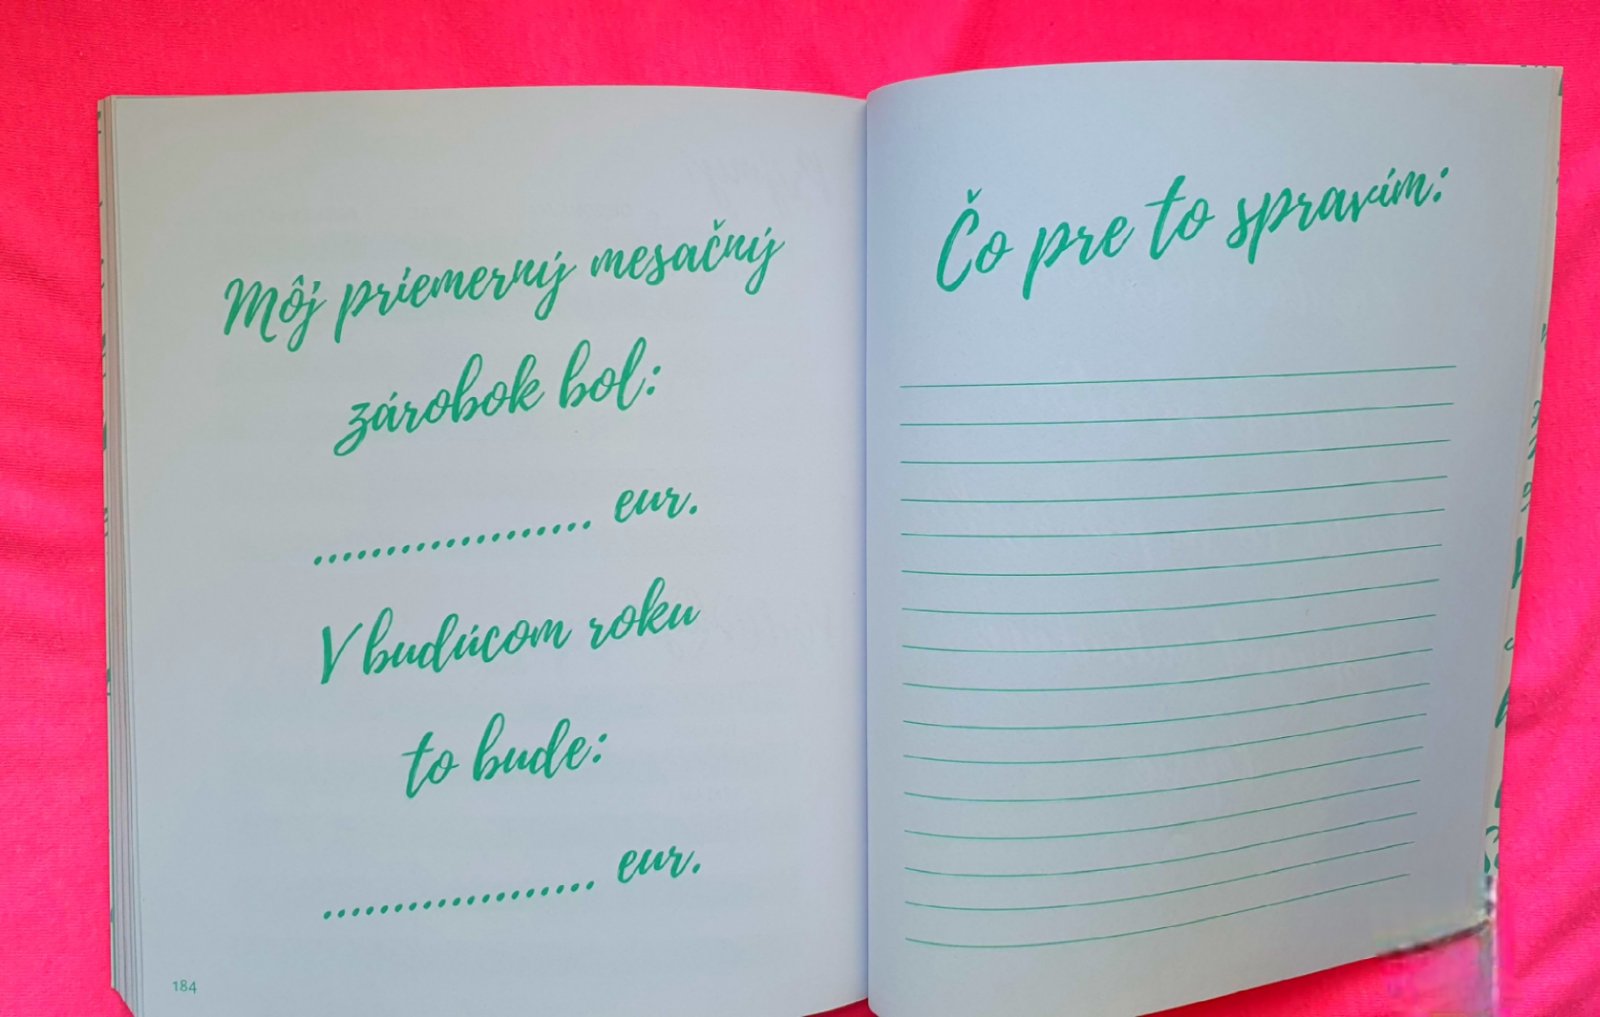 Môj priemerný mesačný
zárobok bol:
................... eur.
V budúcom roku
to bude:
................... eur.
184
Čo pre to spravím: